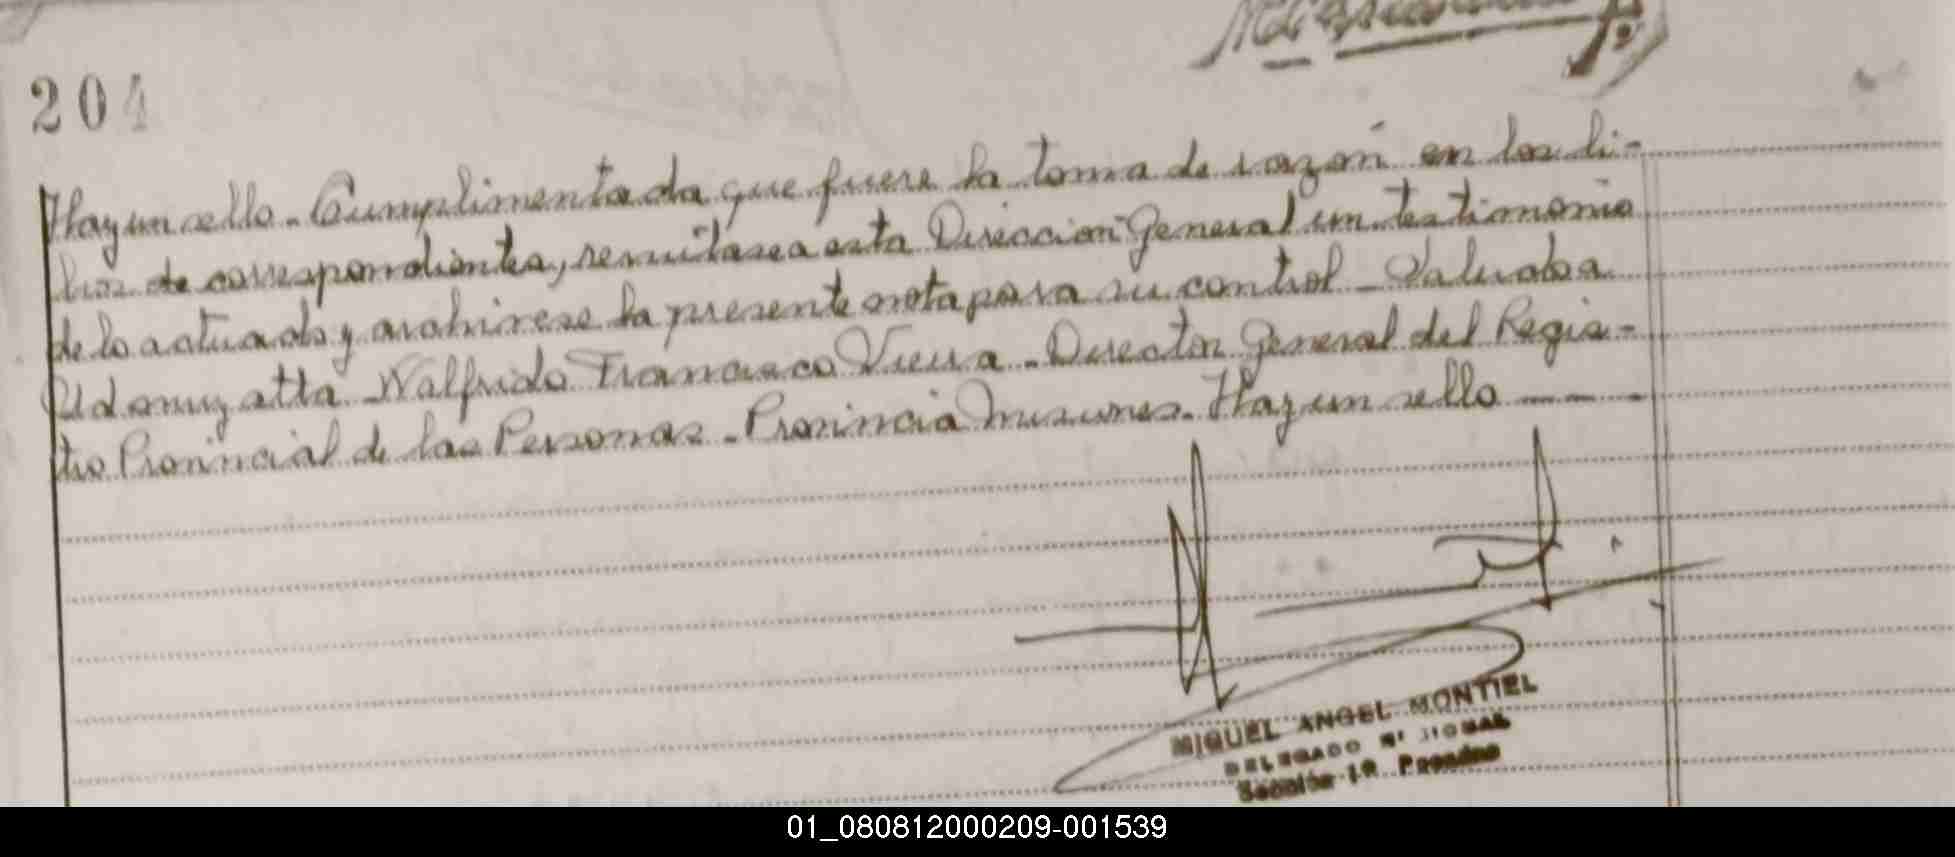 204
Hay un sello. Cumplimentada que fuere la toma de razón en los li-
bros de correspondientes, remitase a esta Dirección General un testimonio
de lo actuado y archivese la presente nota para su control - Saluda a
Ud. muy atta. Walfrido Francisco Vieira - Director General del Regis-
tro Provincial de las Personas - Provincia Misiones - Hay un sello
MIGUEL ANGEL MONTIEL
DELEGADO
Sección 1a Posadas
01_080812000209-001539